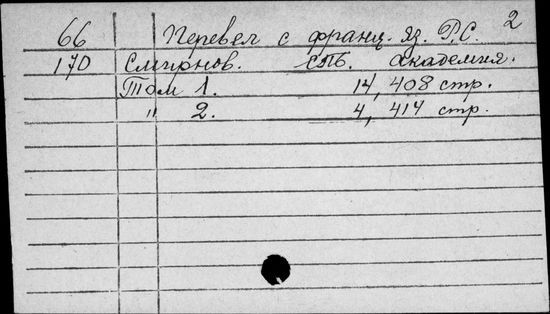 2
66 Перевел с франц. яз. Р.С.
170 Смирнов. СПБ. академия.
Том 1. 14, 408 стр.
" 2. 4, 414 стр.